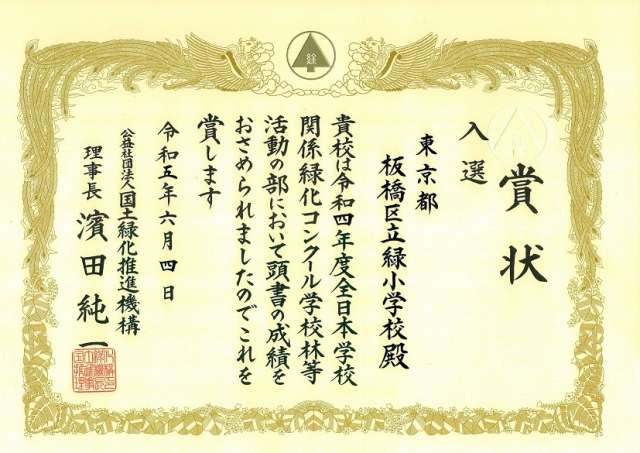 賞状
入選
東京都
板橋区立緑小学校殿
貴校は令和四年度全日本学校
関係緑化コンクール学校林等
活動の部において頭書の成績を
おさめられましたのでこれを
賞します
令和五年六月四日
公益社団法人国土緑化推進機構
理事長 濱田純一